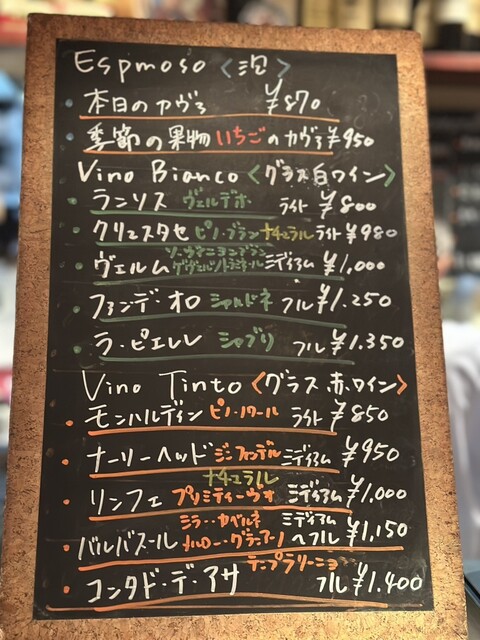 Espmoso <泡>
・本日のカヴァ ¥870
・季節の果物いちごのカヴァ ¥950
Vino Bianco <グラス白ワイン>
・ランソス ヴェルデホ ライト ¥800
・クリュスタセ ピノ・ブラン ナチュラル ライト ¥980
・ヴェルム ソーヴィニヨンブラン ゲヴュルツトラミネール ミディアム ¥1,000
・ファンデ・オロ シャルドネ フル ¥1.250
・ラ・ピエレレ シャブリ フル ¥1.350
Vino Tinto <グラス 赤ワイン>
・モンハルディン ピノ・ノワール ライト ¥850
・ナーリーヘッド ジンファンデル ミディアム ¥950
ナチュラル
・リンフェ プリミティーヴォ ミディアム ¥1,000
・バルバスール シラー・カベルネ メルロー・グラシアーノ ミディアム〜フル ¥1,150
テンプラリーニョ
・コンタド・デ・アサ フル ¥1.400